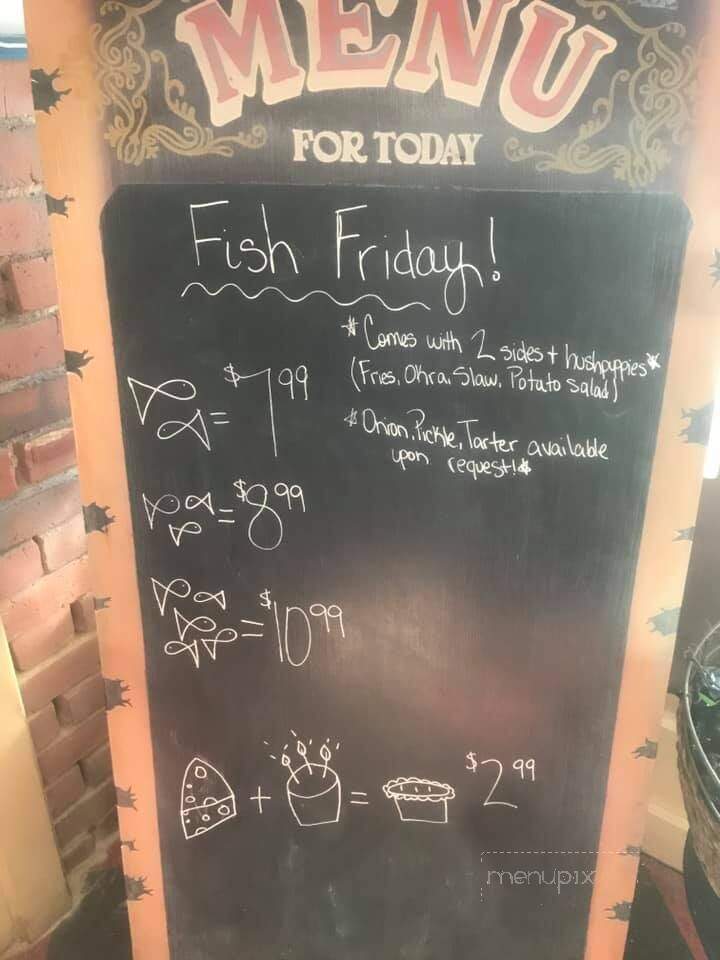 MENU
FOR TODAY
Fish Friday!
* Comes with 2 sides + hushpuppies*
(Fries, Okra, Slaw, Potato Salad)
= $7 99
* Onion, Pickle, Tarter available
upon request! *
= $8 99
= $10 99
+ = $2 99
menupix